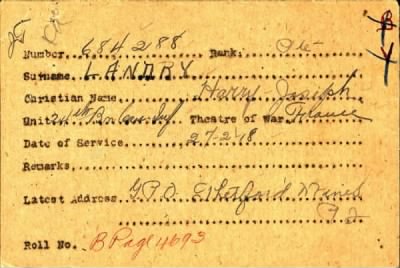 Number 684288 Rank. Pte
Surname LANDRY
Christian Name Harry Joseph
Unit 24th Bn Can Inf. Theatre of War. France
Date of Service 27-2-18
Remarks
Latest Address G.P.O. Thetford Mines
P.Q.
Roll No. B Page 4693